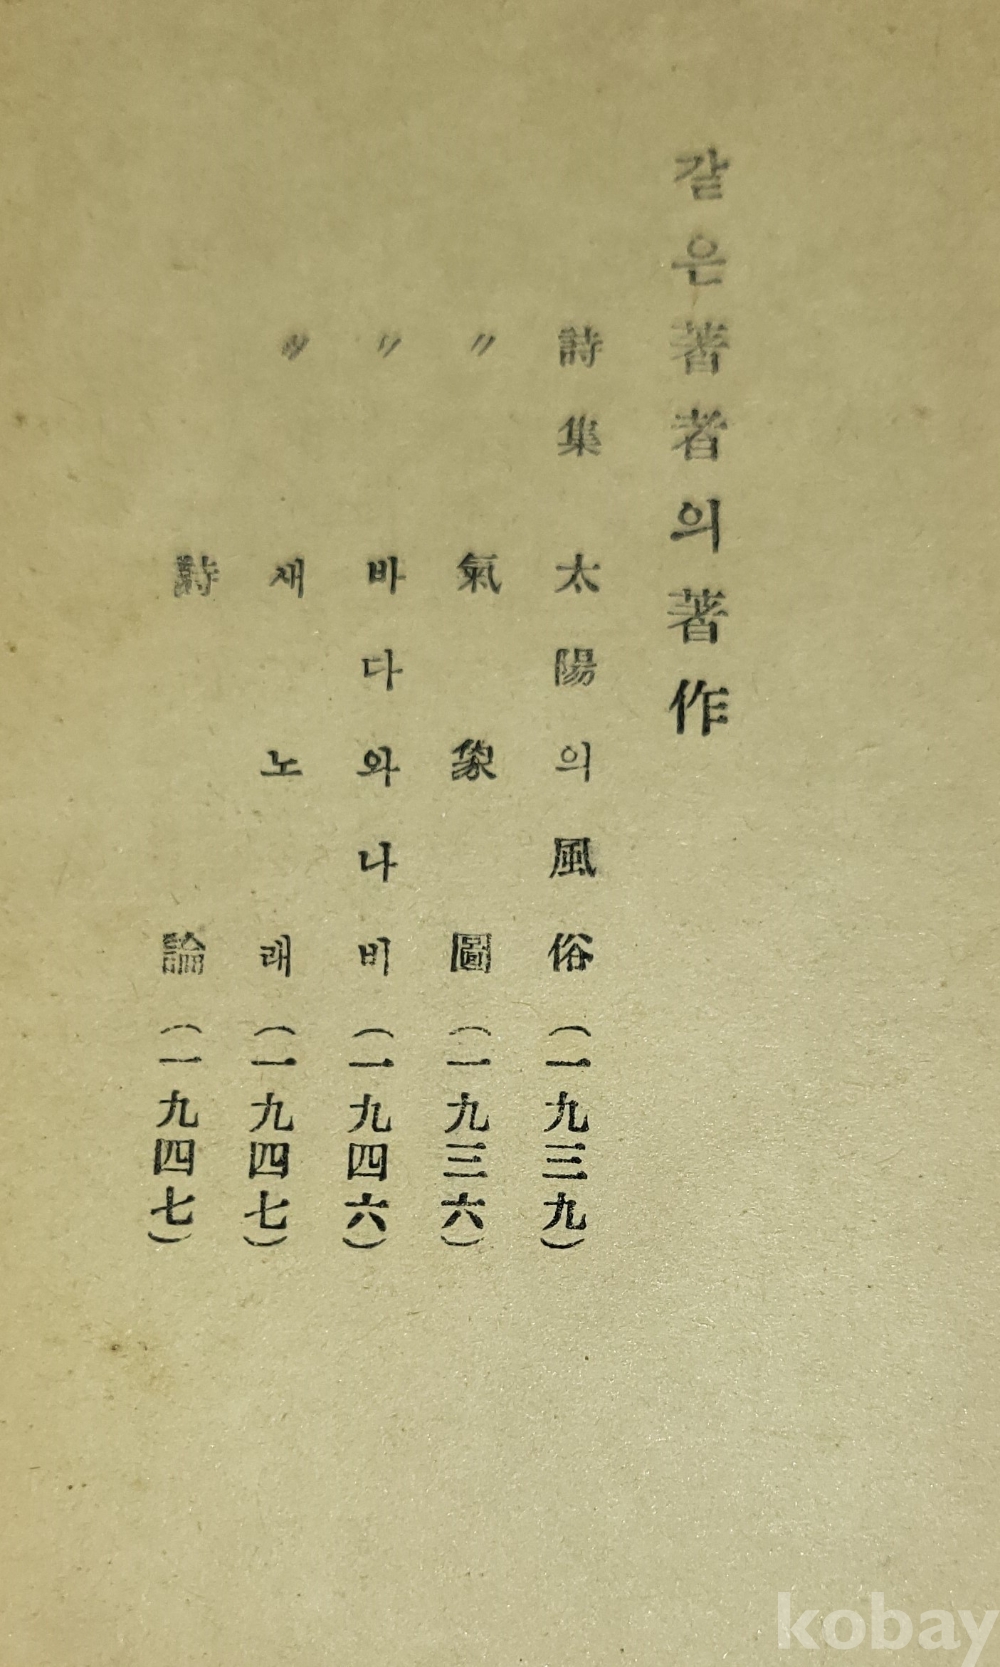 같은著者의著作
詩集 太陽의風俗(一九三九)
〃 氣象圖(一九三六)
〃 바다와나비(一九四六)
〃 새노래(一九四七)
詩論(一九四七)
kobay